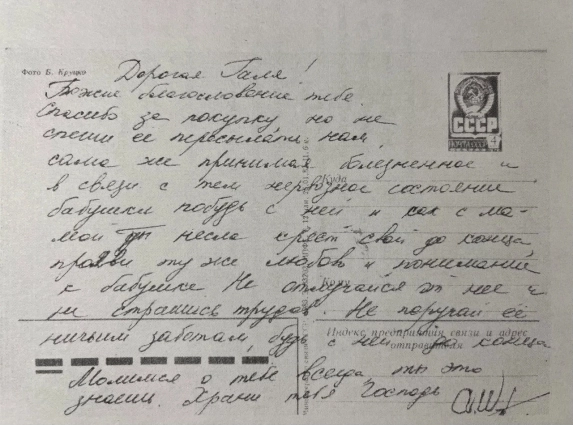 Фото Б. Круцко
Дорогая Галя!
Божие благословение тебе.
Спасибо за покупку но не
спеши ее пересылать нам,
сама же принимая болезненное и
в связи с тем нервозное состояние
бабушки побудь с ней и как с ма-
мой ты несла крест свой до конца
прояви ту же любовь и понимание
к бабушке Не отлучайся от нее и
не страшись трудов. Не поручай её
ничьим заботам, будь с ней до конца
Молимся о тебе всегда ты это
знаешь. Храни тебя Господь
СССР
ПОЧТА
4
Куда
Кому
Индекс предприятия связи и адрес
отправителя